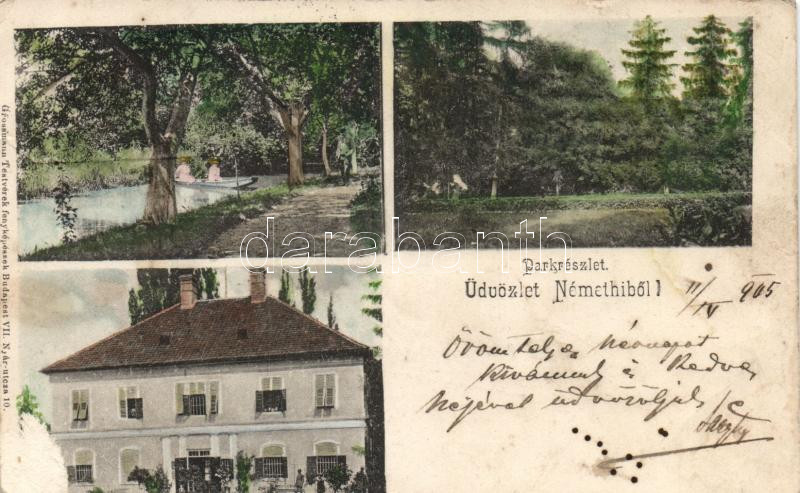 Grossmann Testvérek fényképészek Budapest VII. Nyár-utcza 10.
darabanth.com
Parkrészlet.
Üdvözlet Némethiből!
11/IV 905
Örömtelje névnapot
kívánunk és kedves
nejével üdvözöljük